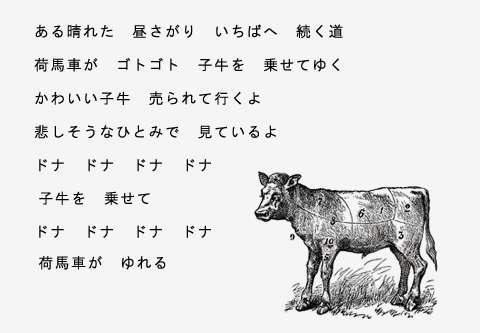 ある晴れた　昼さがり　いちばへ　続く道
荷馬車が　ゴトゴト　子牛を　乗せてゆく
かわいい子牛　売られて行くよ
悲しそうなひとみで　見ているよ
ドナ　ドナ　ドナ　ドナ
子牛を　乗せて
ドナ　ドナ　ドナ　ドナ
荷馬車が　ゆれる
7 8 6 1 2
9 10 3